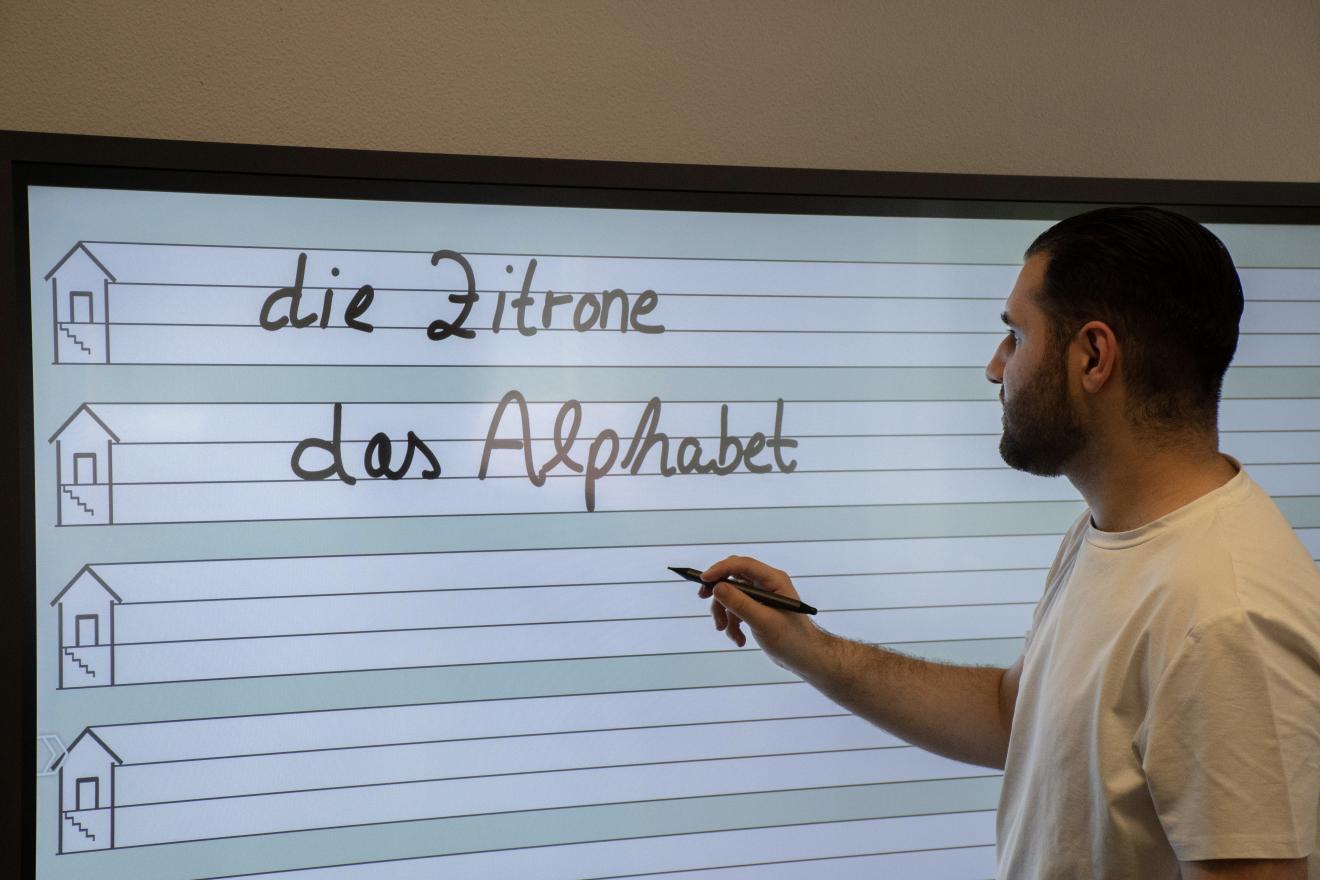 die Zitrone
das Alphabet